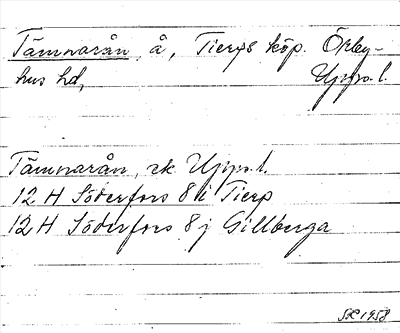 Tämnarån, å, Tierps köp. Örby-
hus hd, Upps. l.
Tämnarån, rk Upps. l.
12 H Söderfors 8 i Tierp
12 H Söderfors 8 j Gillberga
1958